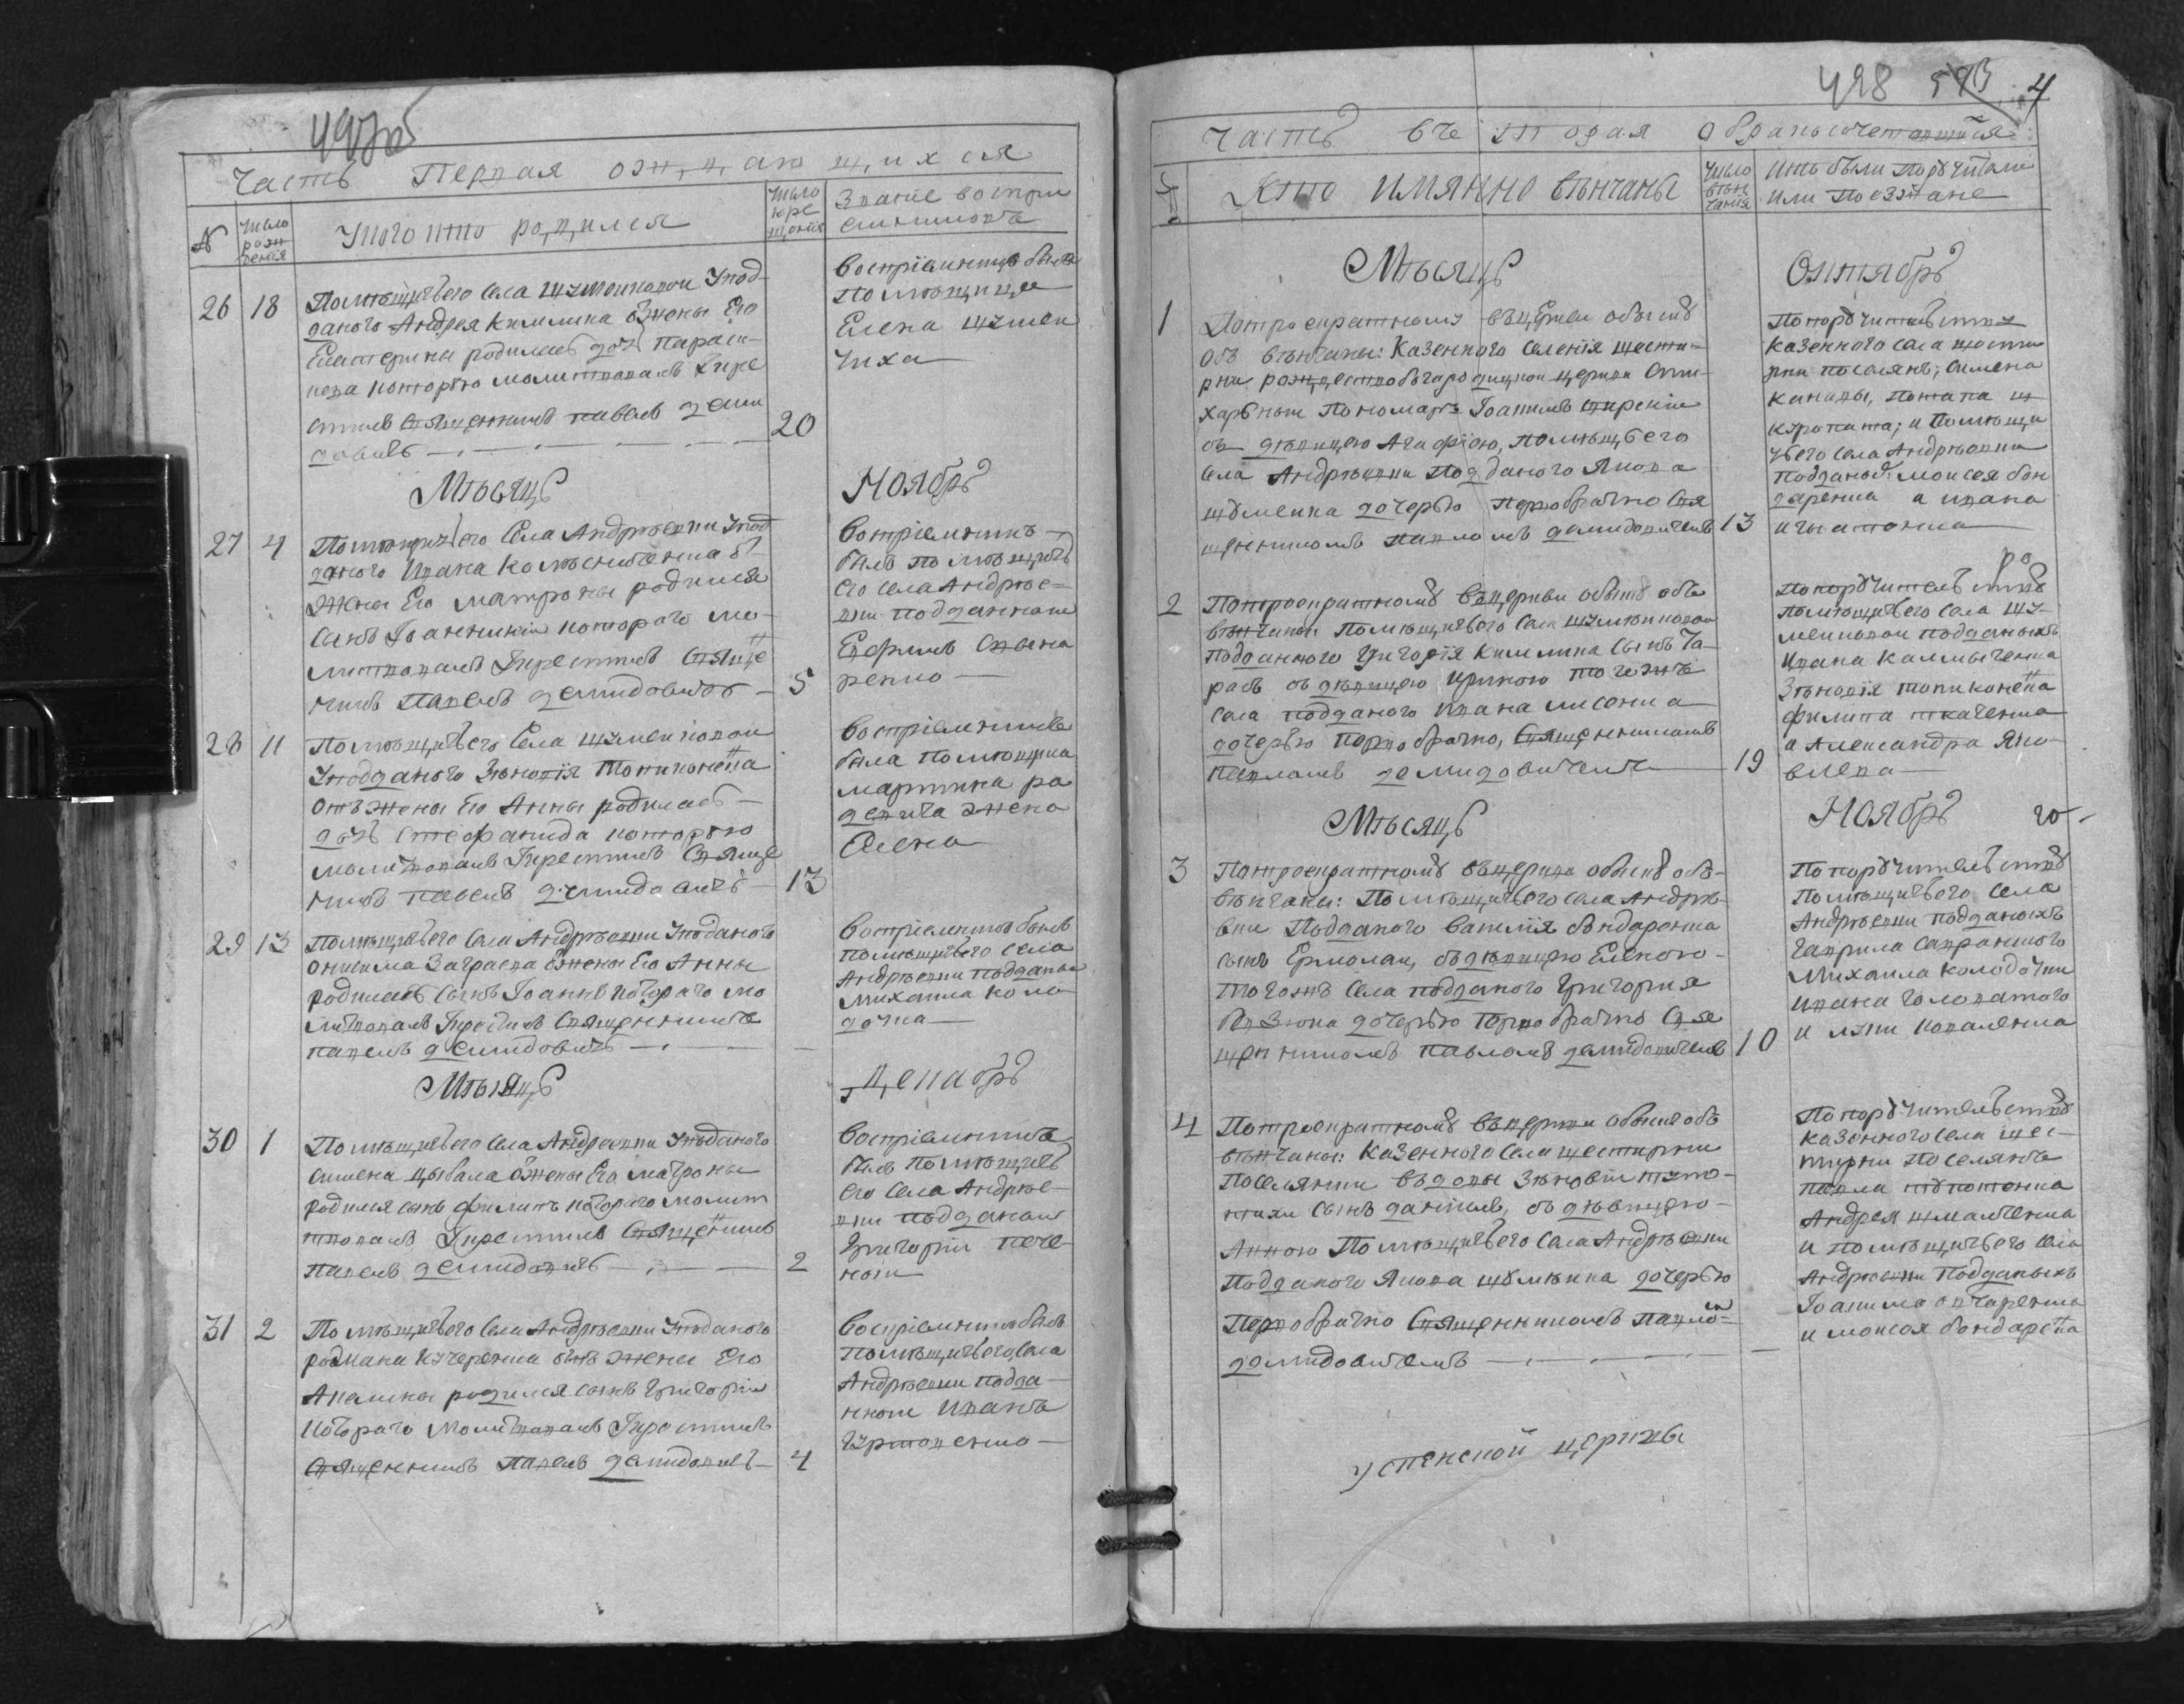 497об
Часть Первая ождающихся
№
Число рождения
У кого кто родился
Число крещения
Званіе воспріемниковъ
26 18
Помѣщичьего села Шумейковои У под-
даного Андрея Киллина бжены Его
Екатерины родилась дочь Параск-
кева которую молитвовалъ и кре
стилъ Священникъ Павелъ Деми
довичъ 20
Воспріемницею была
Помѣщица
Елена Шумей
чиха
Мѣсяцъ Ноябрь
27 4
Помѣщичьего Села Андрѣевки У под
даного Ивана Колѣсниченка от
жены Его Матроны родился
сынъ Іоанникій которого мо-
литвовалъ Ікрестилъ Свяще
никъ Павелъ Демидовичъ 5
Воспріемникъ
былъ помѣщичь
его села Андрѣе-
вки подданный
Ефимъ Овчаренко
28 11
Помѣщичьего Села Шумейковой
У подданого Зѣновія Топиконенка
отъ жены Его Анны родилась
дочь Стефанида которую
молитвовалъ Ікрестилъ Свяще
никъ Павелъ Демидовичъ 13
Воспріемникъ
была помѣщика
Мартина ра
девича жена
Елена
29 13
Помѣщичьего Села Андрѣевки У поданого
Онисима Заграева отжены Его Анны
родился сынъ Іоаннъ которого мо
литвовалъ Ікрестилъ Священникъ
Павелъ Демидовичъ
Воспріемникъ былъ
помѣщичьего села
Андрѣевки подданый
Михаила коло
дочка
Мѣсяцъ Декабрь
30 1
Помѣщичьего Села Андрѣевки У поданого
Симена Цыбала отжены Его Матроны
родился сынъ Филипъ которого молит
твовалъ Ікрестилъ Священникъ
Павелъ Демидовичъ 2
Воспріемникъ
былъ помѣщичь
его села Андрѣе-
вки подданый
Григорій пече-
ный
31 2
Помѣщичьего Села Андрѣевки У поданого
романа Кучеренка отъ жены Его
Акилины родился сынъ Григорій
которого Молитвовалъ Ікрестилъ
Священникъ Павелъ Демидовичъ 4
Воспріемникъ былъ
помѣщичьего села
Андрѣевки подда-
нный Иванъ
Гуртовенко
498 593 4
Часть вторая о бракосочетавшихся
№
Кто имянно вѣнчаны
Число вѣнчанія
Кто были Поручители или Поезжане
Мѣсяцъ Октябрь
1
Потроекратному въ церкви обыску
объ вѣнчаны: Казенного селенія Шести-
рни рождествобогородицкой церкви Сти-
харьный Пономарь Іоакимъ Шкреній
съ дѣвицею Агафіею, помѣщьего
села Андрѣевки Подданого Якова
Шуменка дочерью первобрачно Свя
щенникомъ Павломъ Демидовичемъ 13
По поручительству
казенного села Шести
рни поселянъ; Симена
Канады, Потапа
Куропата; и Помѣщи
чьего села Андрѣевки
подданыхъ Моисея бон
даренка а Ивана
Игнатенка
2
Потроекратному въ церкви обыску объ
вѣнчаны: Помѣщичьего села Шумѣйковои
подданного Григорія Киллина сынъ Та-
расъ съ дѣвицею Ириною того жъ
села подданого Ивана Лисенка
дочерью первобрачно, Священникомъ
Павломъ Демидовичемъ 19
По поручительству
помѣщичьего села Шу-
мейковои подданыхъ
Ивана Калмыченка
Зѣновія Топиконенка
Филипа ткаченка
а Александра Яко-
влева
Мѣсяцъ Ноябрь
3
Потроекратному въ церкви обыску объ-
вѣнчаны: Помѣщичьего села Андрѣе-
вки Подданого Василія бондаренка
сынъ Ермолай, съ дѣвицею Еленою
того жъ села подданого Григорія
дочерью первобрачно Свя
щенникомъ Павломъ Демидовичемъ 10
По поручительству
Помѣщичьего села
Андрѣевки подданыхъ
Гаврила Савранского
Михаила колодочки
Ивана Головатого
и Луки коваленка
4
Потроекратному въ церкви обыску объ
вѣнчаны: Казенного села Шестирни
Поселянки вдовы
сынъ Даніилъ, съ дѣвицею
Анною Помѣщичьего села Андрѣевки
Подданого Якова Шумѣика дочерью
Первобрачно Священникомъ Павло-
Демидовичемъ
По поручительству
казенного села Шес-
тирни поселянъ
Павла
Андрея Шмалченка
и помѣщичьего села
Андрѣевки Подданыхъ
Іоакима овчаренка
и Моисея бондаренка
Успенской церкви